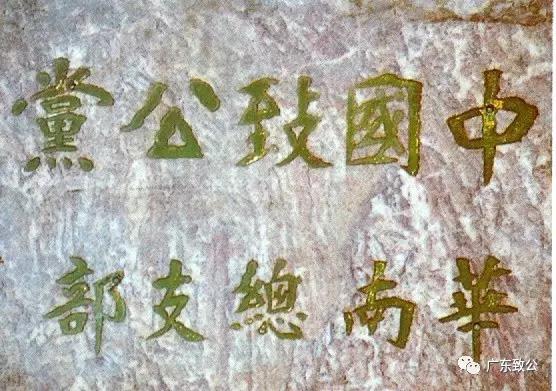 中國致公黨
華南總支部
广东致公